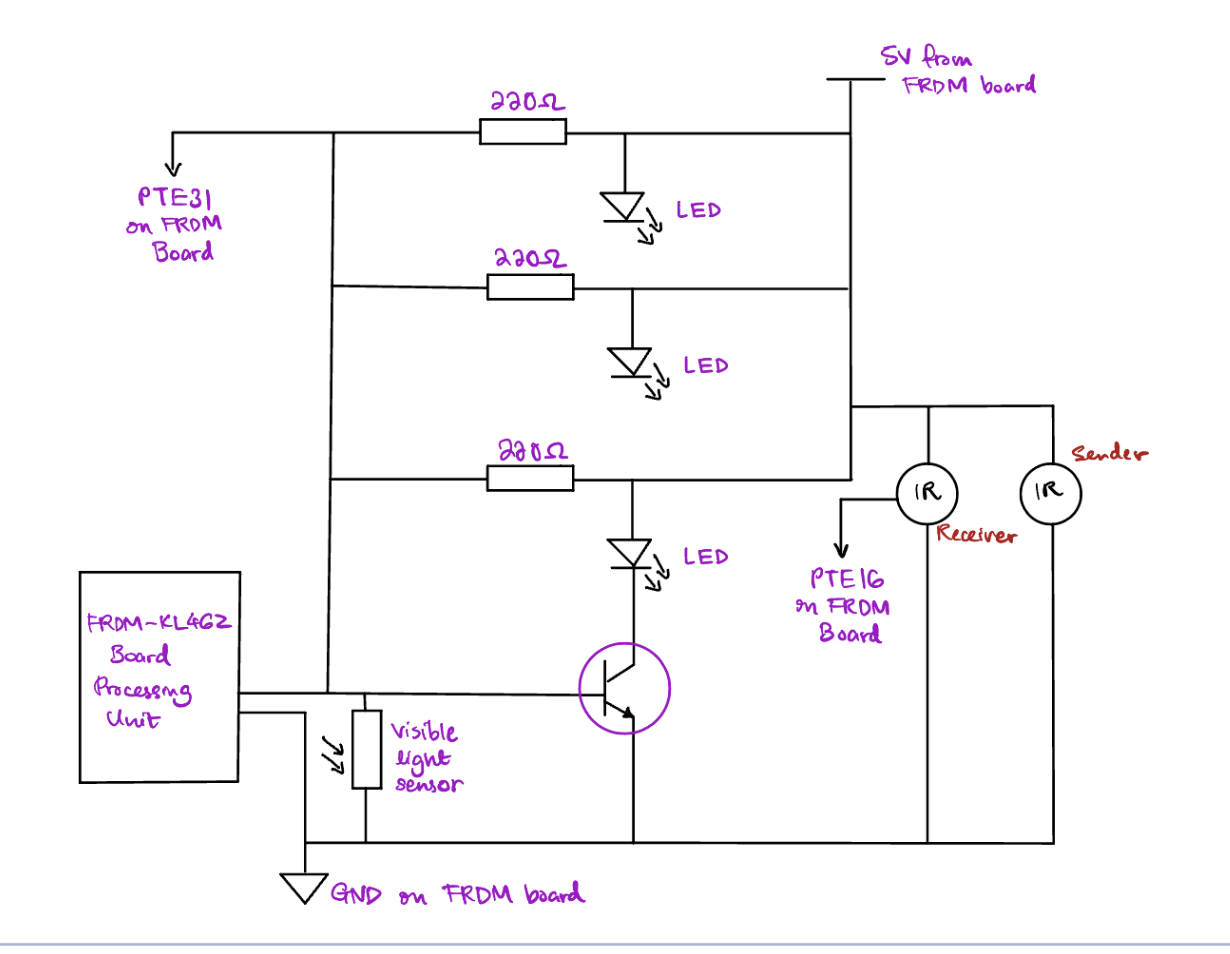 5V from
FRDM board
220Ω
PTE31
on FRDM
Board
LED
220Ω
LED
220Ω
LED
Sender
IR
IR
Receiver
PTE16
on FRDM
Board
FRDM-KL46Z
Board
Processing
Unit
Visible
light
sensor
GND on FRDM board